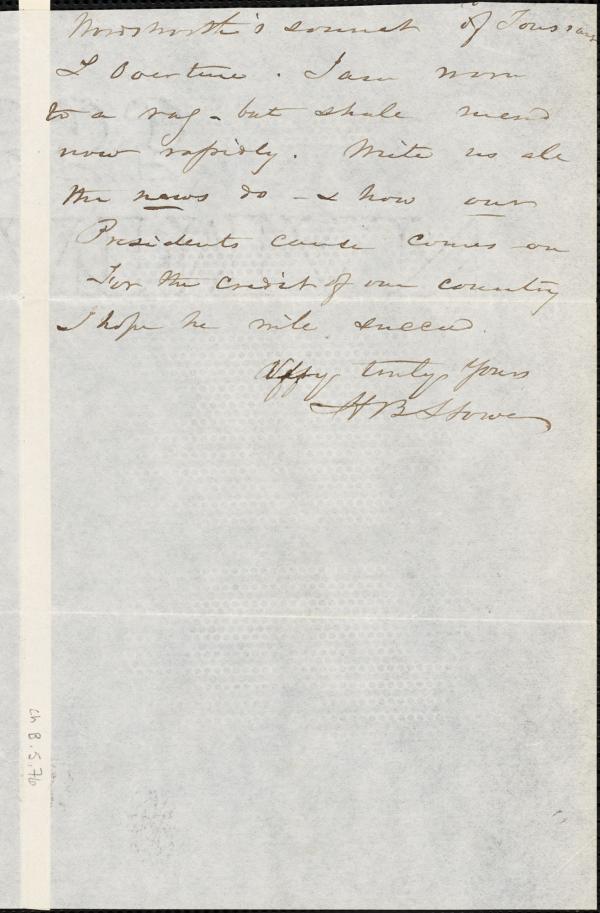 Wordsworth's sonnet of Toussaint
L Overture. I am worn
to a rag - but shall mend
now rapidly. Write us all
the news do - & how our
Presidents cause comes on
For the credit of our country
I hope he will succeed.
truly yours
H B Stowe
Ch B.5.76